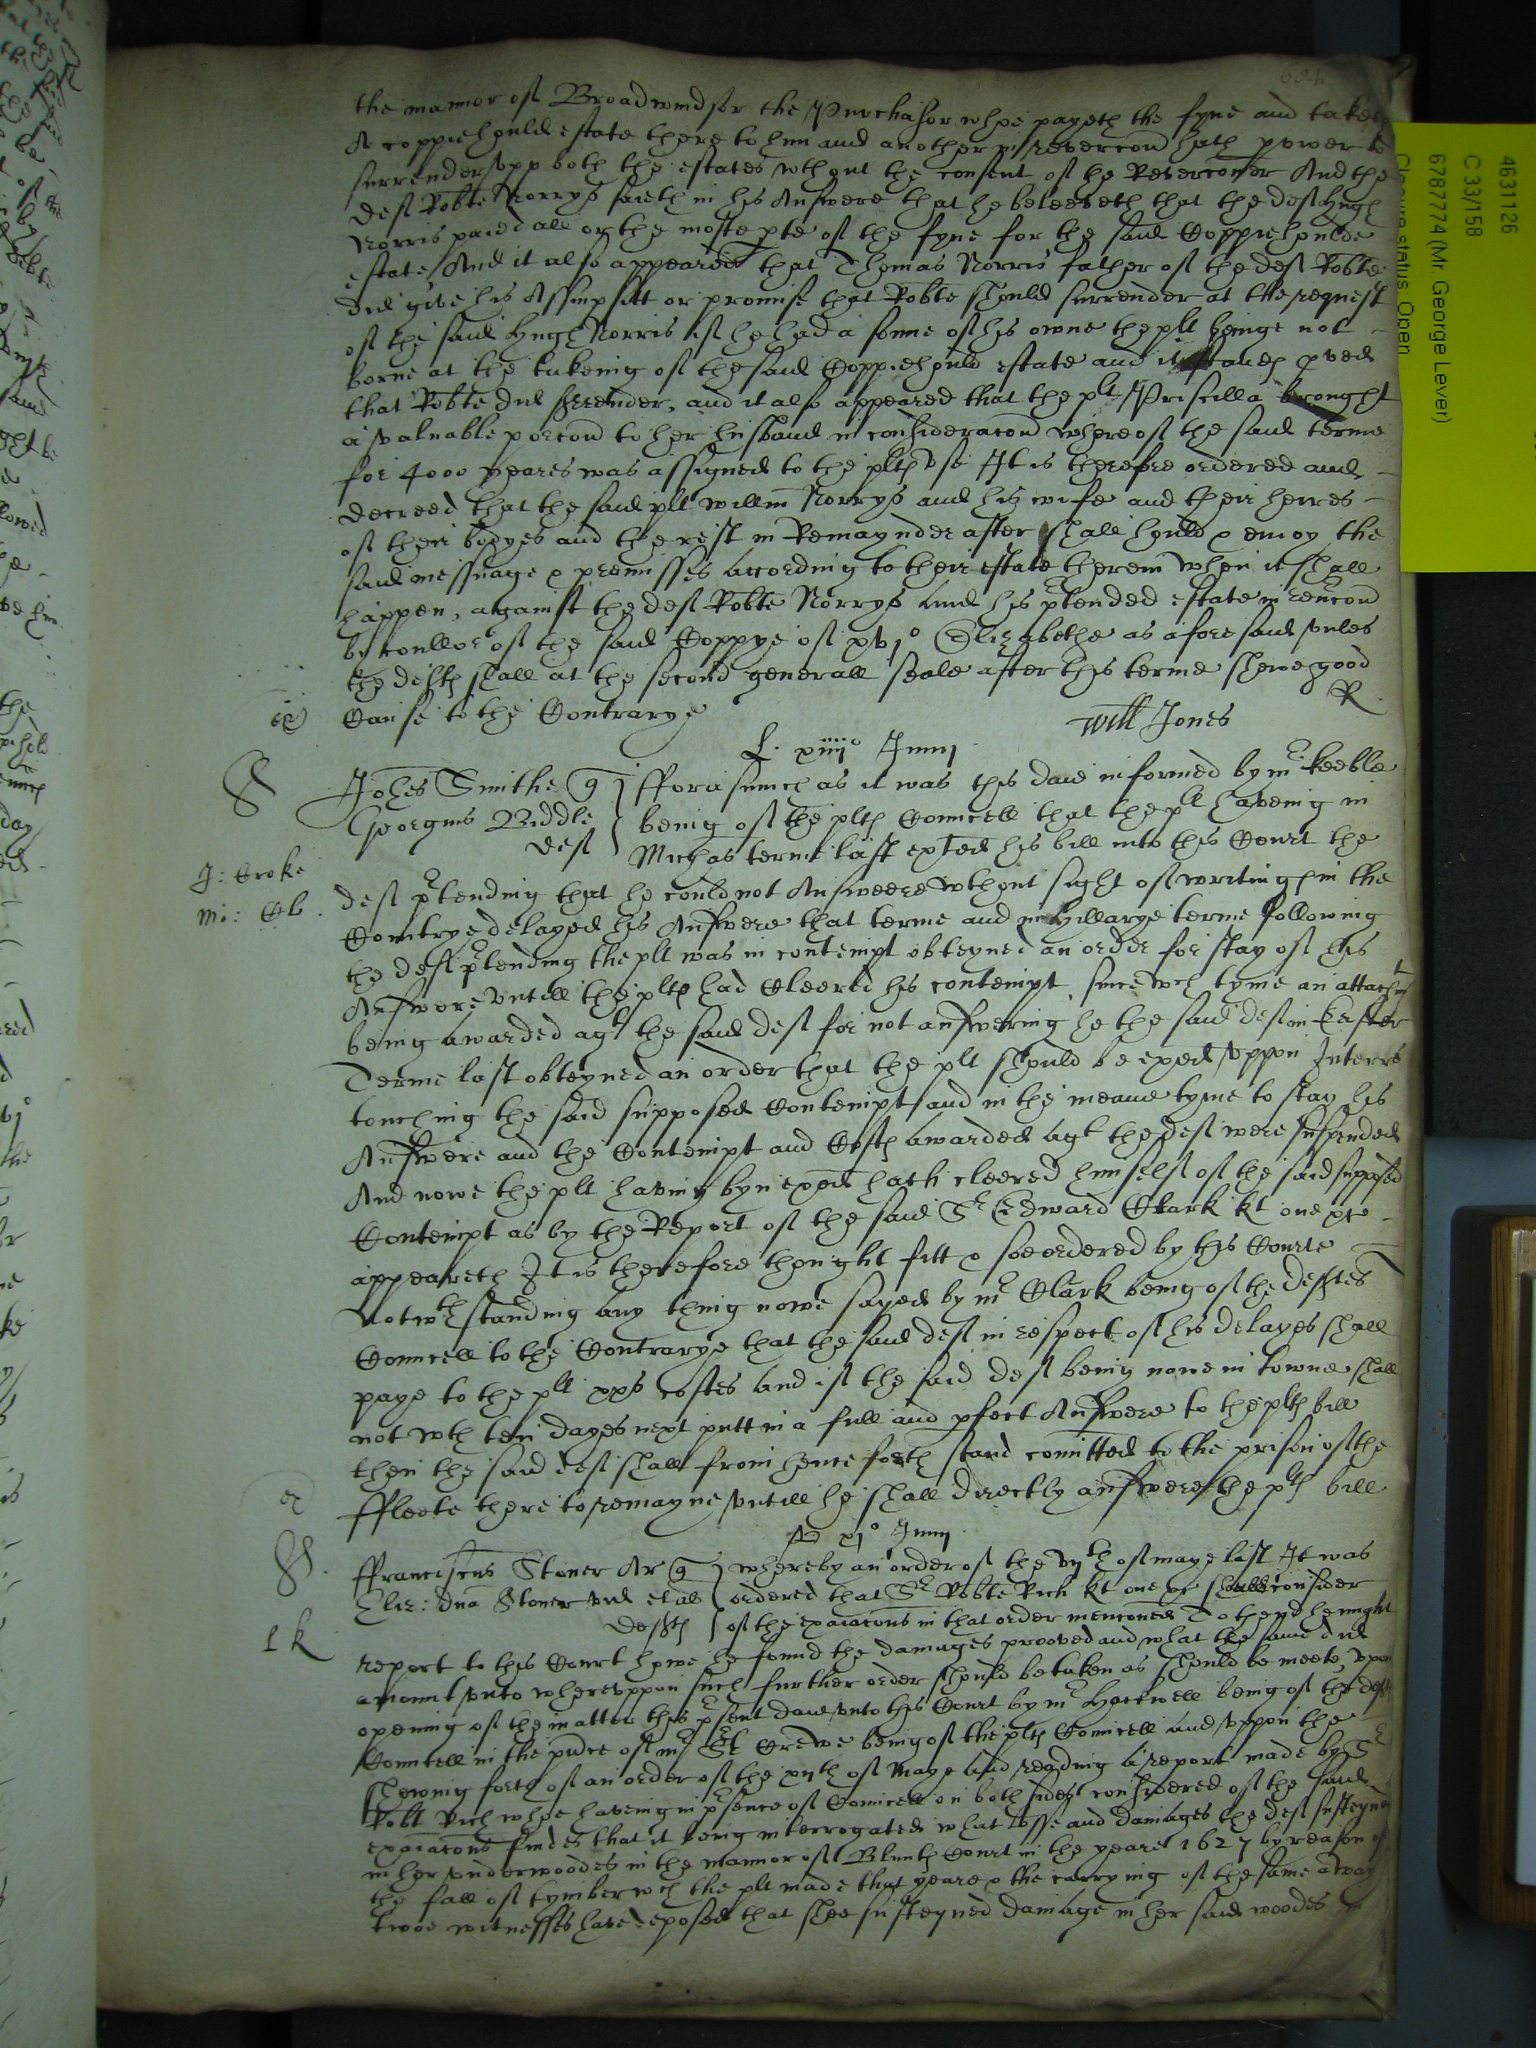 the mannor of Broadwindsor the Purchasor whoe payeth the fyne and taketh
A coppiehould estate there to him and another in revercon hath power to
surrender upp both the estates wthout the consent of the Reverconer And the
deft Robte Norrys saieth in his Answere that he beleeveth that the deft Hugh
Norris paied all or the moste pte of the fyne for the said Coppiehoulde
estate And it also appeared that Thomas Norris father of the deft Robte
did give his Assumpsitt or promise that Robte should surrender at the request
of the said Hugh Norris if he had a sonne of his owne the plt beinge not
borne at the takeing of the said Coppiehould estate and it standeth pved
that Robte did surrender, and it also appeared that the plt Priscilla brought
a valuable porcon to her husband in consideracon whereof the said terme
for 4000 yeares was assigned to the plts use It is therefore ordered and
decreed that the said plt Willm Norrys and his wife and their heires
of their bodyes and the rest in Remaynder after shall hould & enioy the
said messuage & premisses according to their estate therein when it shall
happen, against the deft Robte Norrys and his ptended estate in revcon
by coullor of the said Coppye of xvjo Elizabethe as aforesaid unles
the defts shall at the second generall seale after this terme shewe good
Cause to the Contrarye
R
Will Jones
L. xiiijo Junij
S
Johes Smithe q
Georgius Biddle
deft
fforasmuch as it was this daie informed by mr Keeble
being of the plts Councell that the plt haveing in
Michas terme last exhted his bill into this Court the
J: Croke
deft ptending that he could not Answeere wthout sight of writings in the
Countrye delayed his Answere that terme and in Hillarye terme following
the deft ptending the plt was in contempt obteyned an order for stay of his
Answere untill the plts had Cleered his contempt, since wch tyme an attachmt
being awarded agt the said deft for not answering he the said deft in Easter
Terme last obteyned an order that the plt should be exed uppon Interrs
touching the said supposed Contempt and in the meane tyme to stay his
Answere and the Contempt and Costs awarded agt the deft were suspended
And nowe the plt having byn exed hath cleered himself of the said supposed
Contempt as by the Report of the said Sr Edward Clark kt one &c
appeareth It is therefore thought fitt & soe ordered by this Courte
Notwthstanding any thing nowe sayed by mr Clark being of the deftes
Councell to the Contrarye that the said deft in respect of his delayes shall
paye to the plt xxs costes And if the said deft being nowe in towne shall
not wth ten dayes next putt in a full and pfect Answere to the plts bill
then the said deft shall from henceforth stand comitted to the prison of the
ffleete there to remayne untill he shall directly answere the plts bill
xjo Junij
ffranciscus Stoner Ar q
Eliz: dna Stoner vid et al
defts
Whereby an order of the vijth of maye last It was
ordered that Sr Robte Rich kt one &c should consider
of the exaiacons in that order menconed To thend he might
report to this Court howe he found the damages prooved and what the same did
amount unto whereuppon such further order should be taken as should be meete, upon
opening of the matter this psent daie unto this Court by mr Hackwell being of the defts
Councell in the pnce of mr Srt Crewe being of the plts Councell and uppon the
shewing forth of an order of the xijth of Maye And reading a report made by Sr
Robt Rich whoe haveing in psence of Councell on both sides considered of the said
exaiacons findes that it being interrogated what losse and damages the deft susteyned
in her underwoodes in the mannor of Blunts Court in the yeare 1627 by reason of
the fall of tymber wch the plt made that yeare & the carrying of the same away
twoe witnesses have deposed that shee susteyned damage in her said woodes
4631126
C 33/158
6787774 (Mr. George Lever)
Closure status: Open